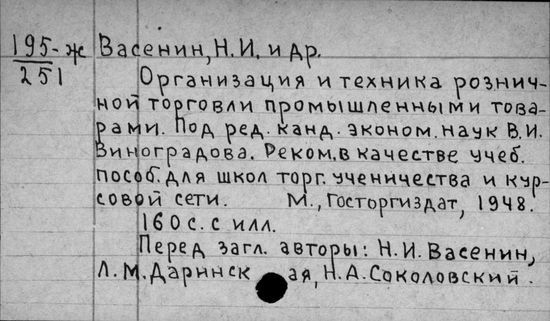 195-ж Васенин, Н.И. и др.
251
Организация и техника рознич-
ной торговли промышленными това-
рами. Под ред. канд. эконом. наук В.И.
Виноградова. Реком. в качестве учеб.
пособ. для школ торг. ученичества и кур-
совой сети. М., Госторгиздат, 1948.
160 с. с илл.
Перед загл. авторы: Н.И. Васенин,
Л.М. Даринск ая, Н.А. Соколовский.